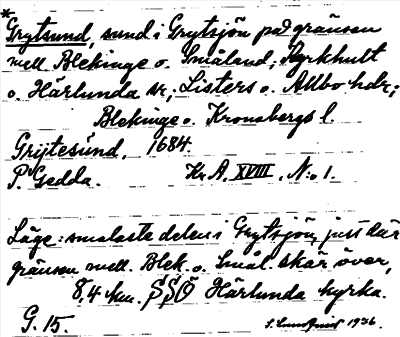 *
Grytsund, sund i Grytsjön på gränsen
mell. Blekinge o. Småland; Kyrkhult
o. Härlunda sr; Listers o. Allbo hdr;
Blekinge o. Kronobergs l.
Grijtesund. 1684.
P. Gedda. Kr. A. XVIII, N:o 1.
Läge: smalaste delen i Grytsjön, just där
gränsen mell. Blek. o. Smål. skär över,
8,4 km. SSÖ Härlunda kyrka.
G. 15. 1936.